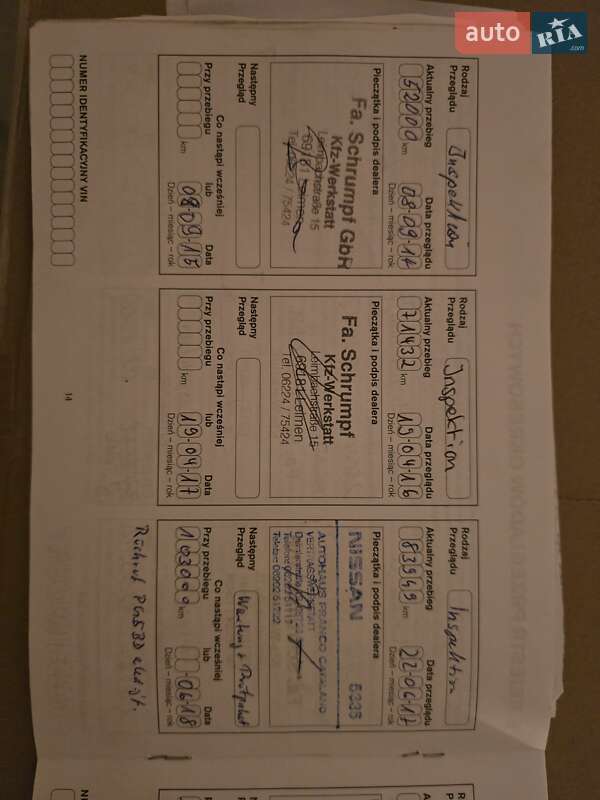 auto RIA .com
Rodzaj Przeglądu Inspektion
Aktualny przebieg 52000 km
Data przeglądu 08-09-14
Dzień – miesiąc – rok
Pieczątka i podpis dealera
Fa. Schrumpf GbR
Kfz-Werkstatt
Leimbachstraße 15
69181 Leimen
Następny Przegląd
Co nastąpi wcześniej
Przy przebiegu km
lub
Data 08-09-15
Dzień – miesiąc – rok
NUMER IDENTYFIKACYJNY VIN
Rodzaj Przeglądu Inspektion
Aktualny przebieg 71432 km
Data przeglądu 19-04-16
Dzień – miesiąc – rok
Pieczątka i podpis dealera
Fa. Schrumpf
Kfz-Werkstatt
Leimbachstraße 15
69181 Leimen
Tel. 06224 / 75424
Następny Przegląd
Co nastąpi wcześniej
Przy przebiegu km
lub
Data 19-04-17
Dzień – miesiąc – rok
14
Rodzaj Przeglądu Inspektion
Aktualny przebieg 83949 km
Data przeglądu 22-06-17
Dzień – miesiąc – rok
Pieczątka i podpis dealera
NISSAN
AUTOHAUS
Następny Przegląd
Co nastąpi wcześniej
Przy przebiegu 103000 km
lub
Data 06-18
Dzień – miesiąc – rok